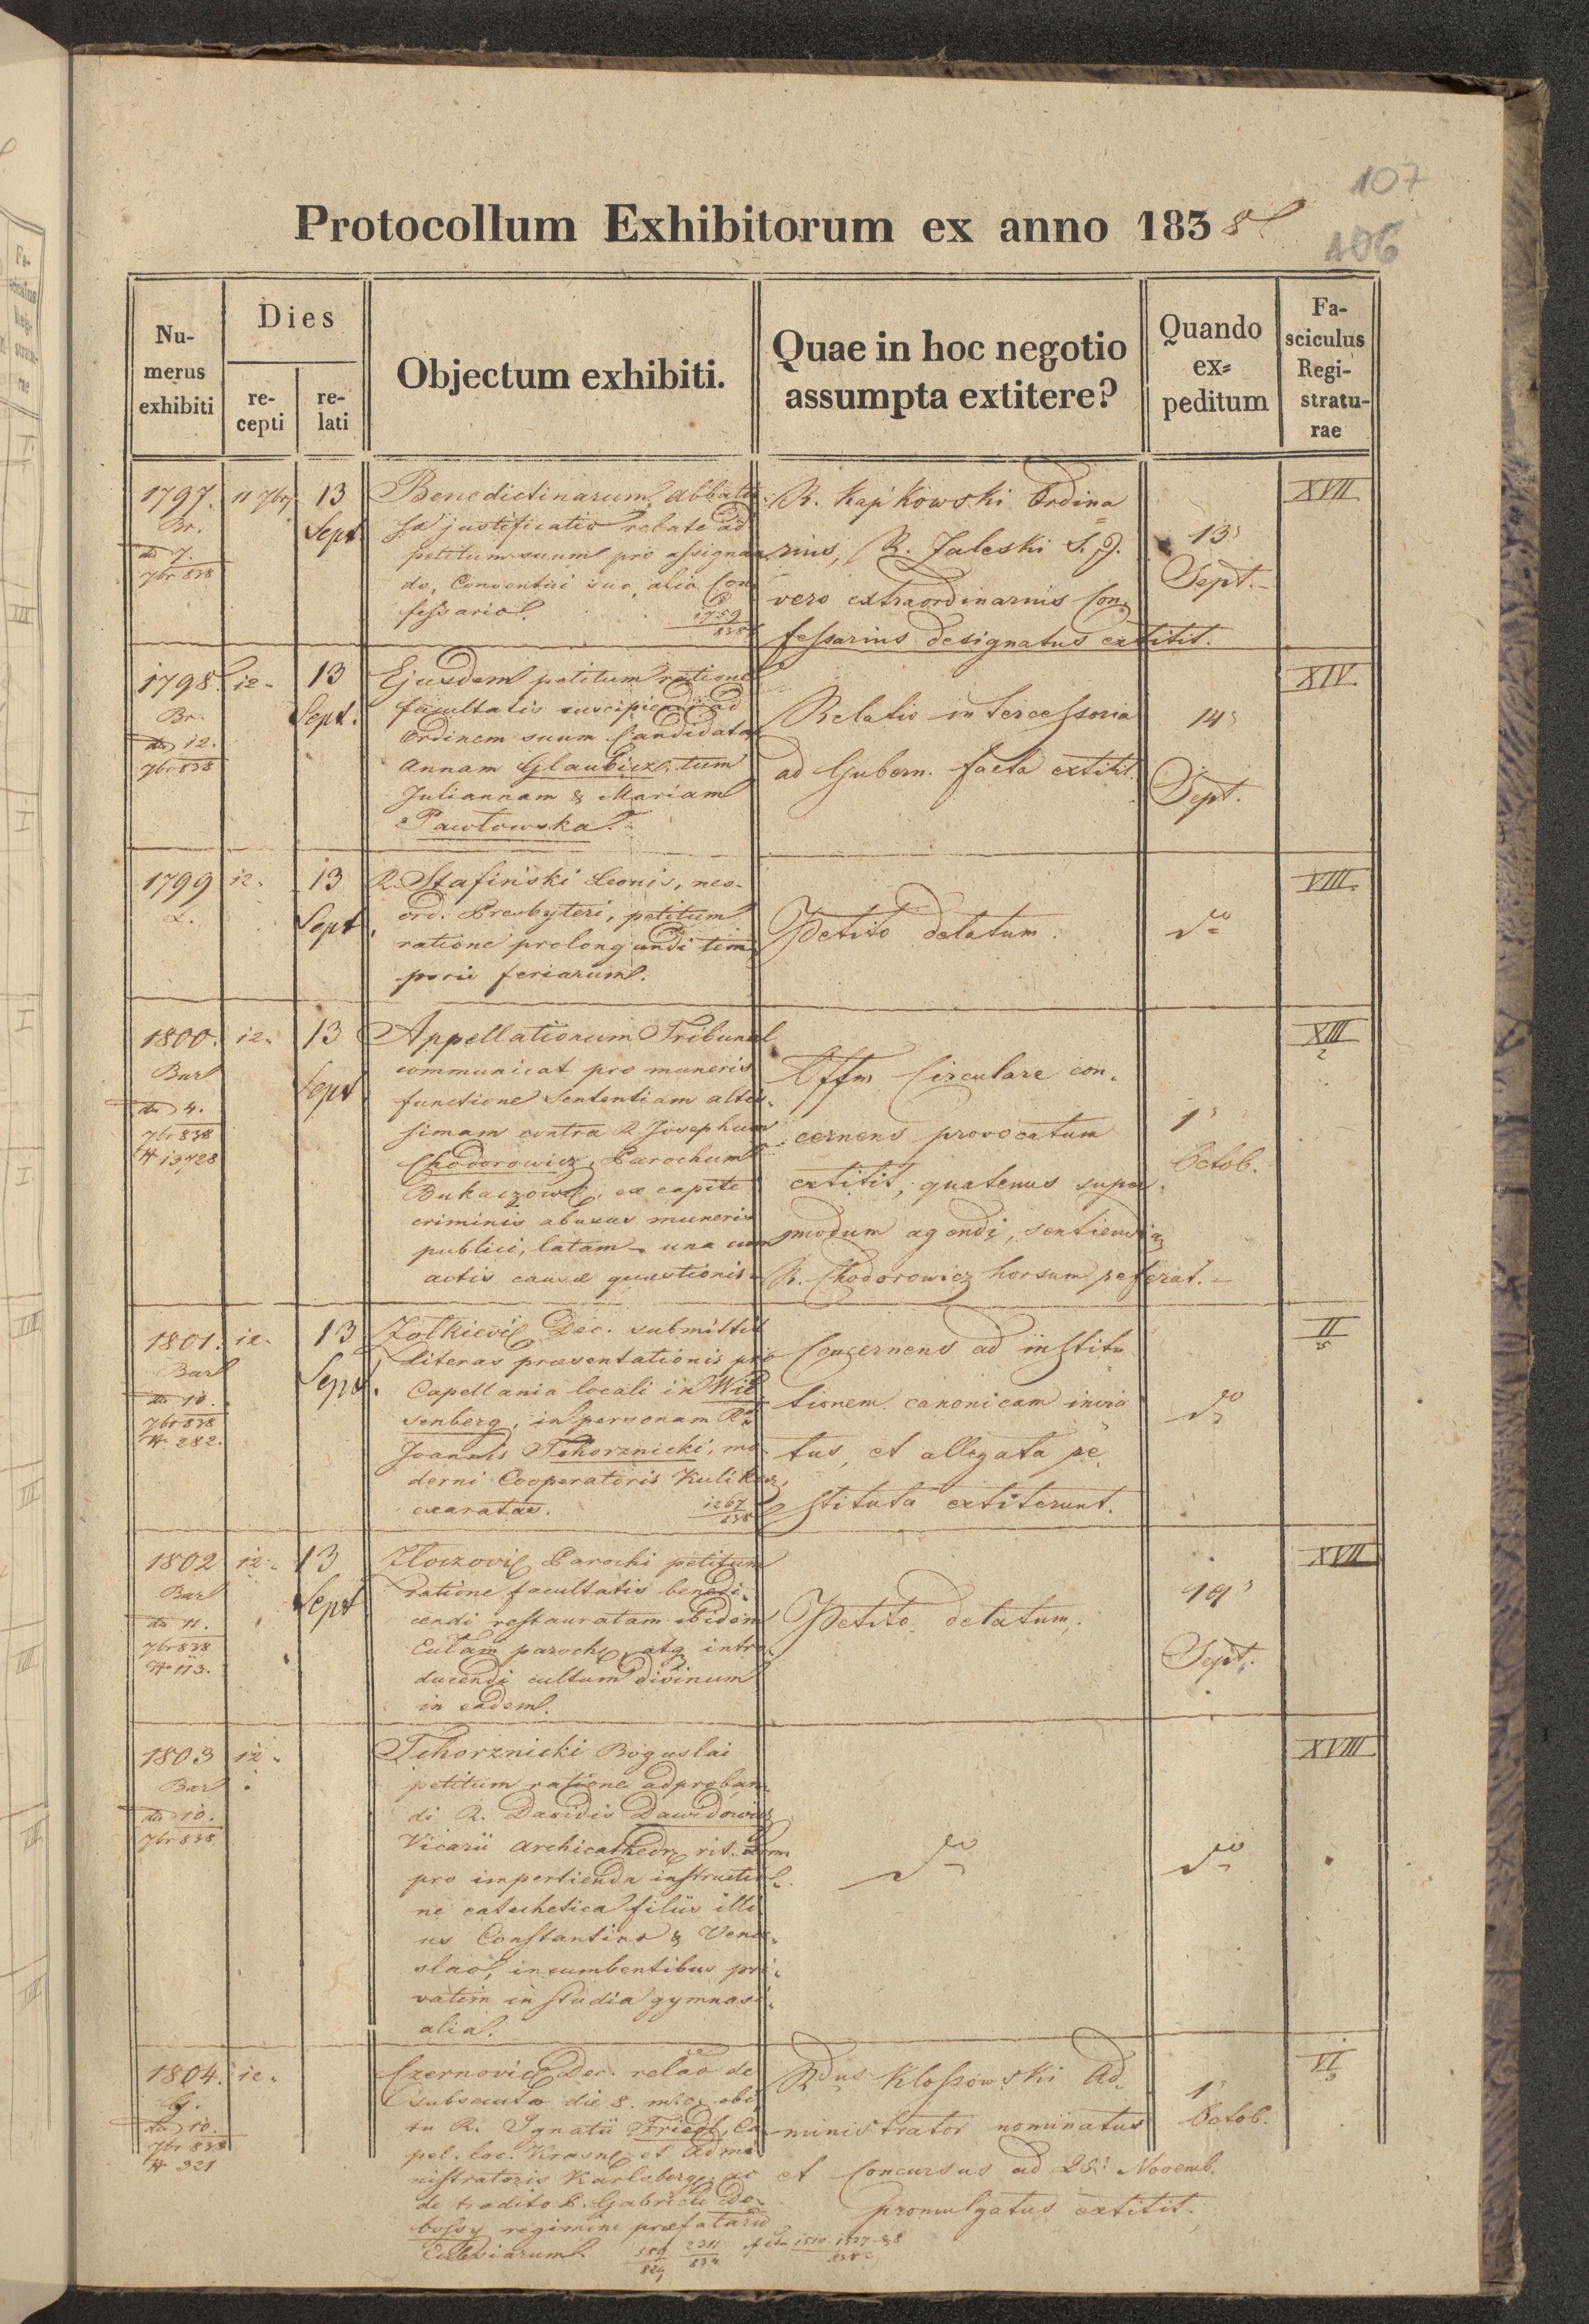 107
106
Protocollum Exhibitorum ex anno 1838
Nu-
merus
exhibiti
Dies
re-
cepti
re-
lati
Objectum exhibiti.
Quae in hoc negotio
assumpta extitere?
Quando
ex=
peditum
Fa-
sciculus
Regi-
stratu-
rae
1797. 11 7br 13 Sept
Br.
do 7.
7br 838
Benedictinarum Abbatis
sa justificatio relate ad
petitum suum pro assignan
do, Conventui suo, alio Con
fessario.
1759
838
R. Kapkowski Ordina
rius, R. Zaleski S. J.
vero extraordinarius Con
fessarius designatus extitit.
13
Sept.
XVII
1798. 12 13 Sept.
Br.
do 12.
7br 838
Ejusdem petitum ratione
facultatis suscipiendi ad
Ordinem suum Candidatas
Annam Glaubicz, tum
Juliannam & Mariam
Pawłowska.
Relatio intercessoria
ad Gubern. facta extitit.
14
Sept.
XIV
1799 12. 13 Sept.
L.
R. Stafiński Leonis, neo-
ord. Presbyteri, petitum
ratione prolongandi tem
poris feriarum.
Petito delatum.
do
VIII
1800. 12. 13 Sept
Bar
do 4.
7br 838
# 13,728
Appellationum Tribunal
communicat pro muneris
functione Sententiam altis-
simam contra R. Josephum
Chodorowicz, Parochum
Bukaczow, ex capite
criminis abusus muneris
publici, latam una cum
actis causae quaestionis.
Offm Circulare con-
cernens provocatum
extitit, quatenus super
modum agendi, sentiendi
R. Chodorowicz horsum referat.
1
Octob.
XIII
2
1801. 12. 13 Sept.
Bar
do 10.
7br 838
# 282.
Zolkievi Dec. submittit
literas praesentationis pro
Capellania locali in Wie
senberg, in personam R
Joannis Tchorznicki, mo
derni Cooperatoris Kuliko
exaratas.
1267
838
Concernens ad institu
tionem canonicam invia
tus, et allegata re
stituta extiterunt.
do
II
5
1802 12. 13 Sept
Bar
do 11.
7br 838
# 113.
Zloczovi Parochi petitum
ratione facultatis benedi-
cendi restauratam ibidem
Eccl parochi, atq intro
ducendi cultum divinum
in eadem.
Petito delatum.
19
Sept.
XVII
1803 12.
Bar
do 10.
7br 838
Tchorznicki Boguslai
petitum ratione adproban
di R. Davidis Dawidowicz
Vicarii Archicathedr rit. arm
pro impertienda instructio
ne catechetica filiis illi
us Constantino & Vence-
slao, incumbentibus pri-
vatim in studia gymnasi-
alia.
do
do
XVIII
1804. 12.
do 10.
7br 838
# 321
Czernovi Dec. relao de
subsecuto die 8. obi
tu R. Ignatii Friedl, Ca
pel. loc. Krasne et Admi
nistratoris Karlsberg, ac
de tradito R. Gabrieli Do-
bossy regimine praefatarum
Ecclesiarum.
829
2311
834
1510 1537
838
Rdus Klossowski Ad-
ministrator nominatus
et Concursus ad 25 Novemb.
promulgatus extitit.
1
Octob.
VI